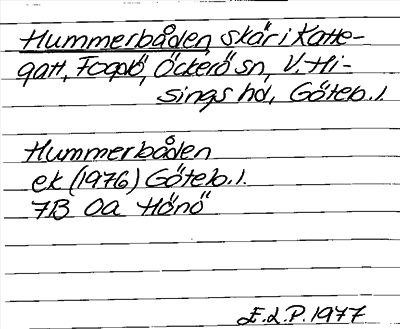 Hummerbåden, skär i Katte-
gatt, Fogdö, Öckerö sn, V. Hi-
sings hd, Göteb. l.
Hummerbåden
ek (1976) Göteb. l.
7B 0a Hönö
E.L.P. 1977